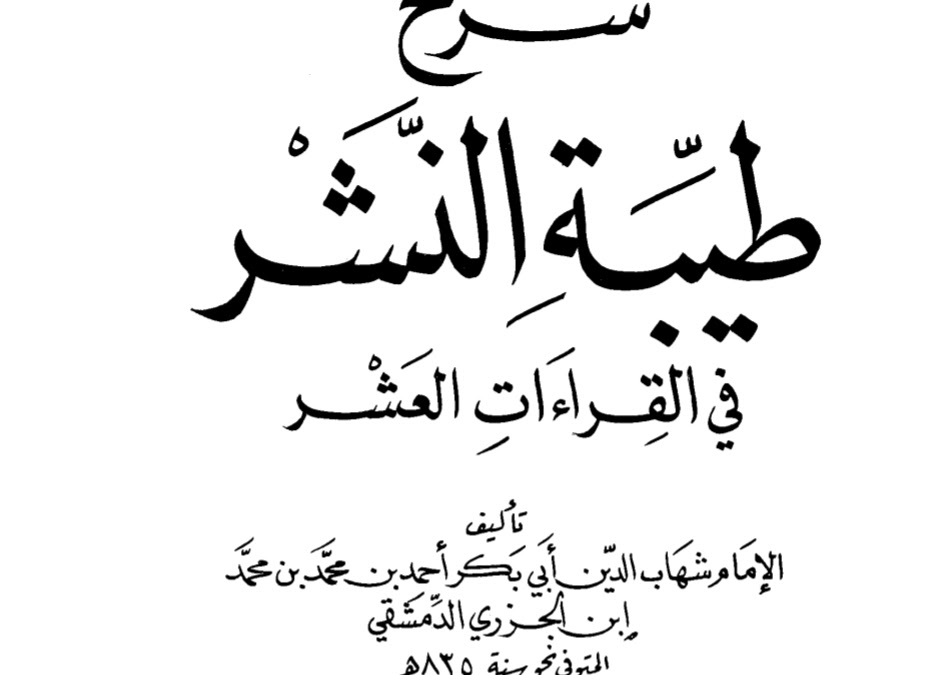 شرح
طَيِّبَةِ النَّشْرْ
في القِراءَاتِ العَشْر
تأليف
الإمَام شهَاب الدّين أَبي بَكر أحمد بن محمَّد بن محمَّد
إبن الجزري الدِّمَشقي
المتوفى نحو سنة ٨٣٥ه